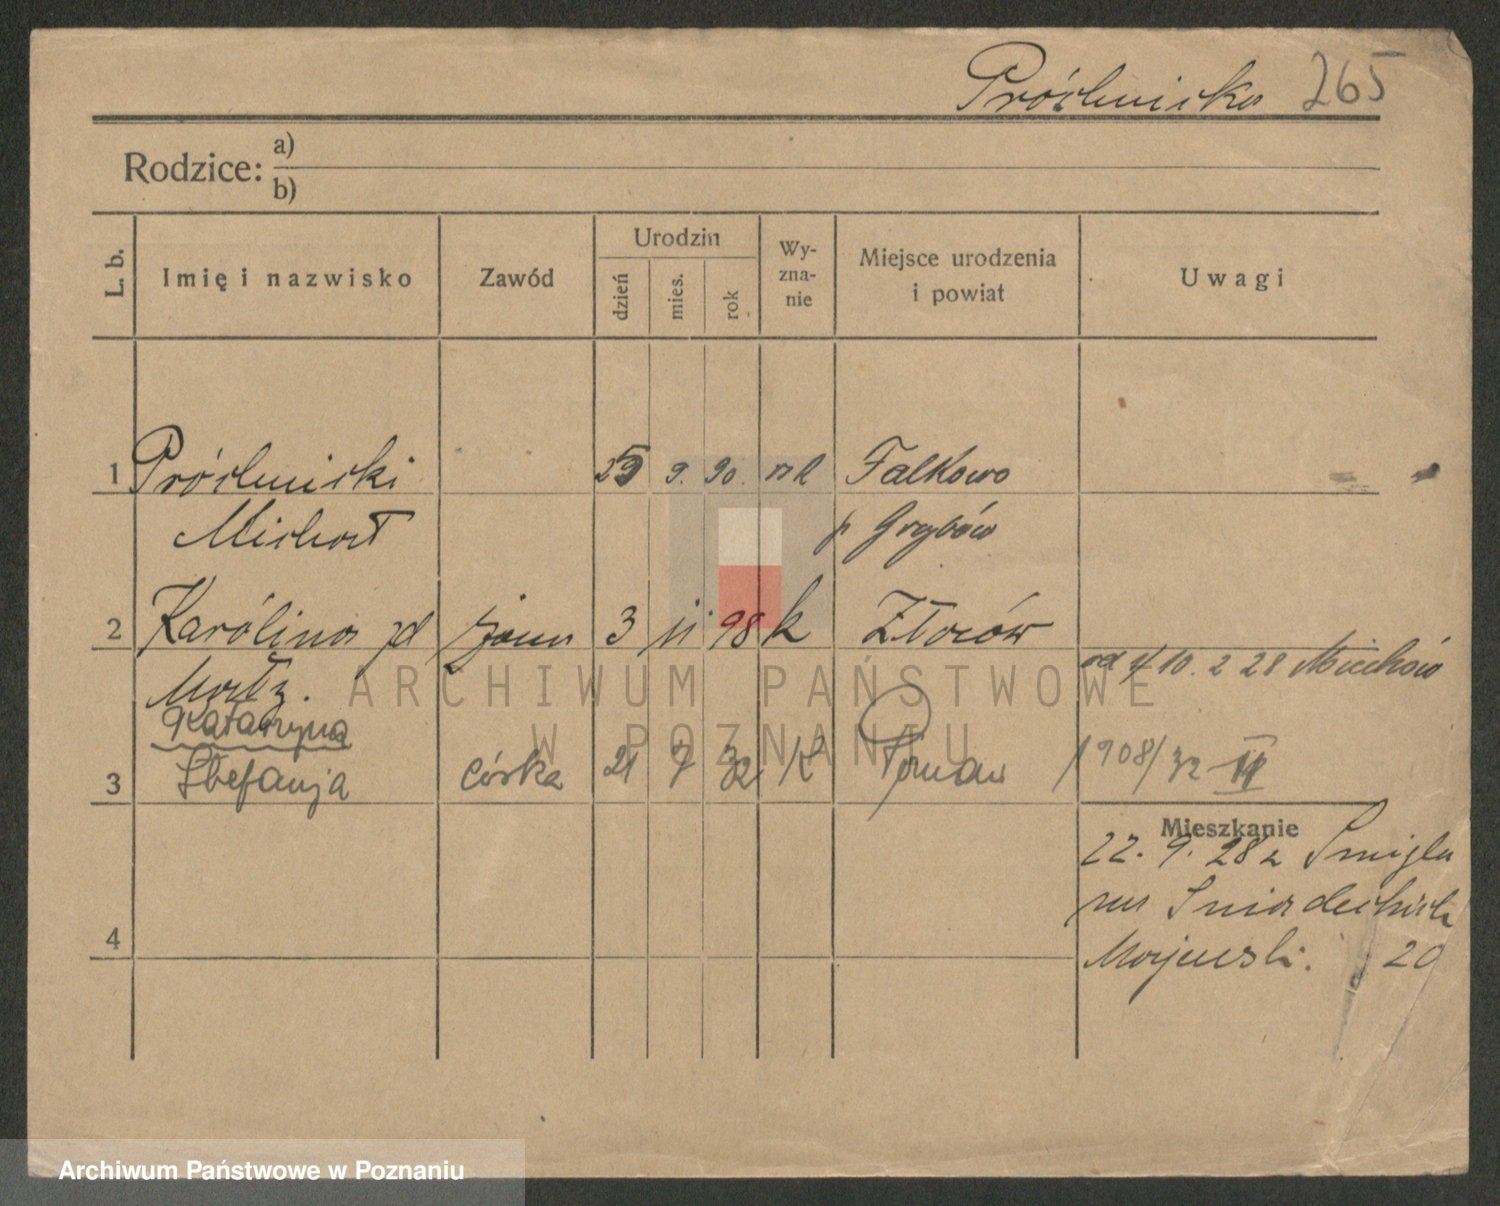 265
Rodzice: a)
b)
L. b.
Imię i nazwisko
Zawód
Urodzin
dzień
mies.
rok
Wy-
zna-
nie
Miejsce urodzenia
i powiat
Uwagi
1
9. 90. Falkowo
Michał
p Grybów
2 Karolina zd żona 3 11 98 k Złoczów
od 10. 2 28 Miechów
Katarzyna
3 Stefanja córka 21 7 32 K Poznań 1908/32 II
Mieszkanie
22. 9. 28 z Śmigla
na Śniadeckich
Majewski. 20
4
ARCHIWUM PAŃSTWOWE
W POZNANIU
Archiwum Państwowe w Poznaniu